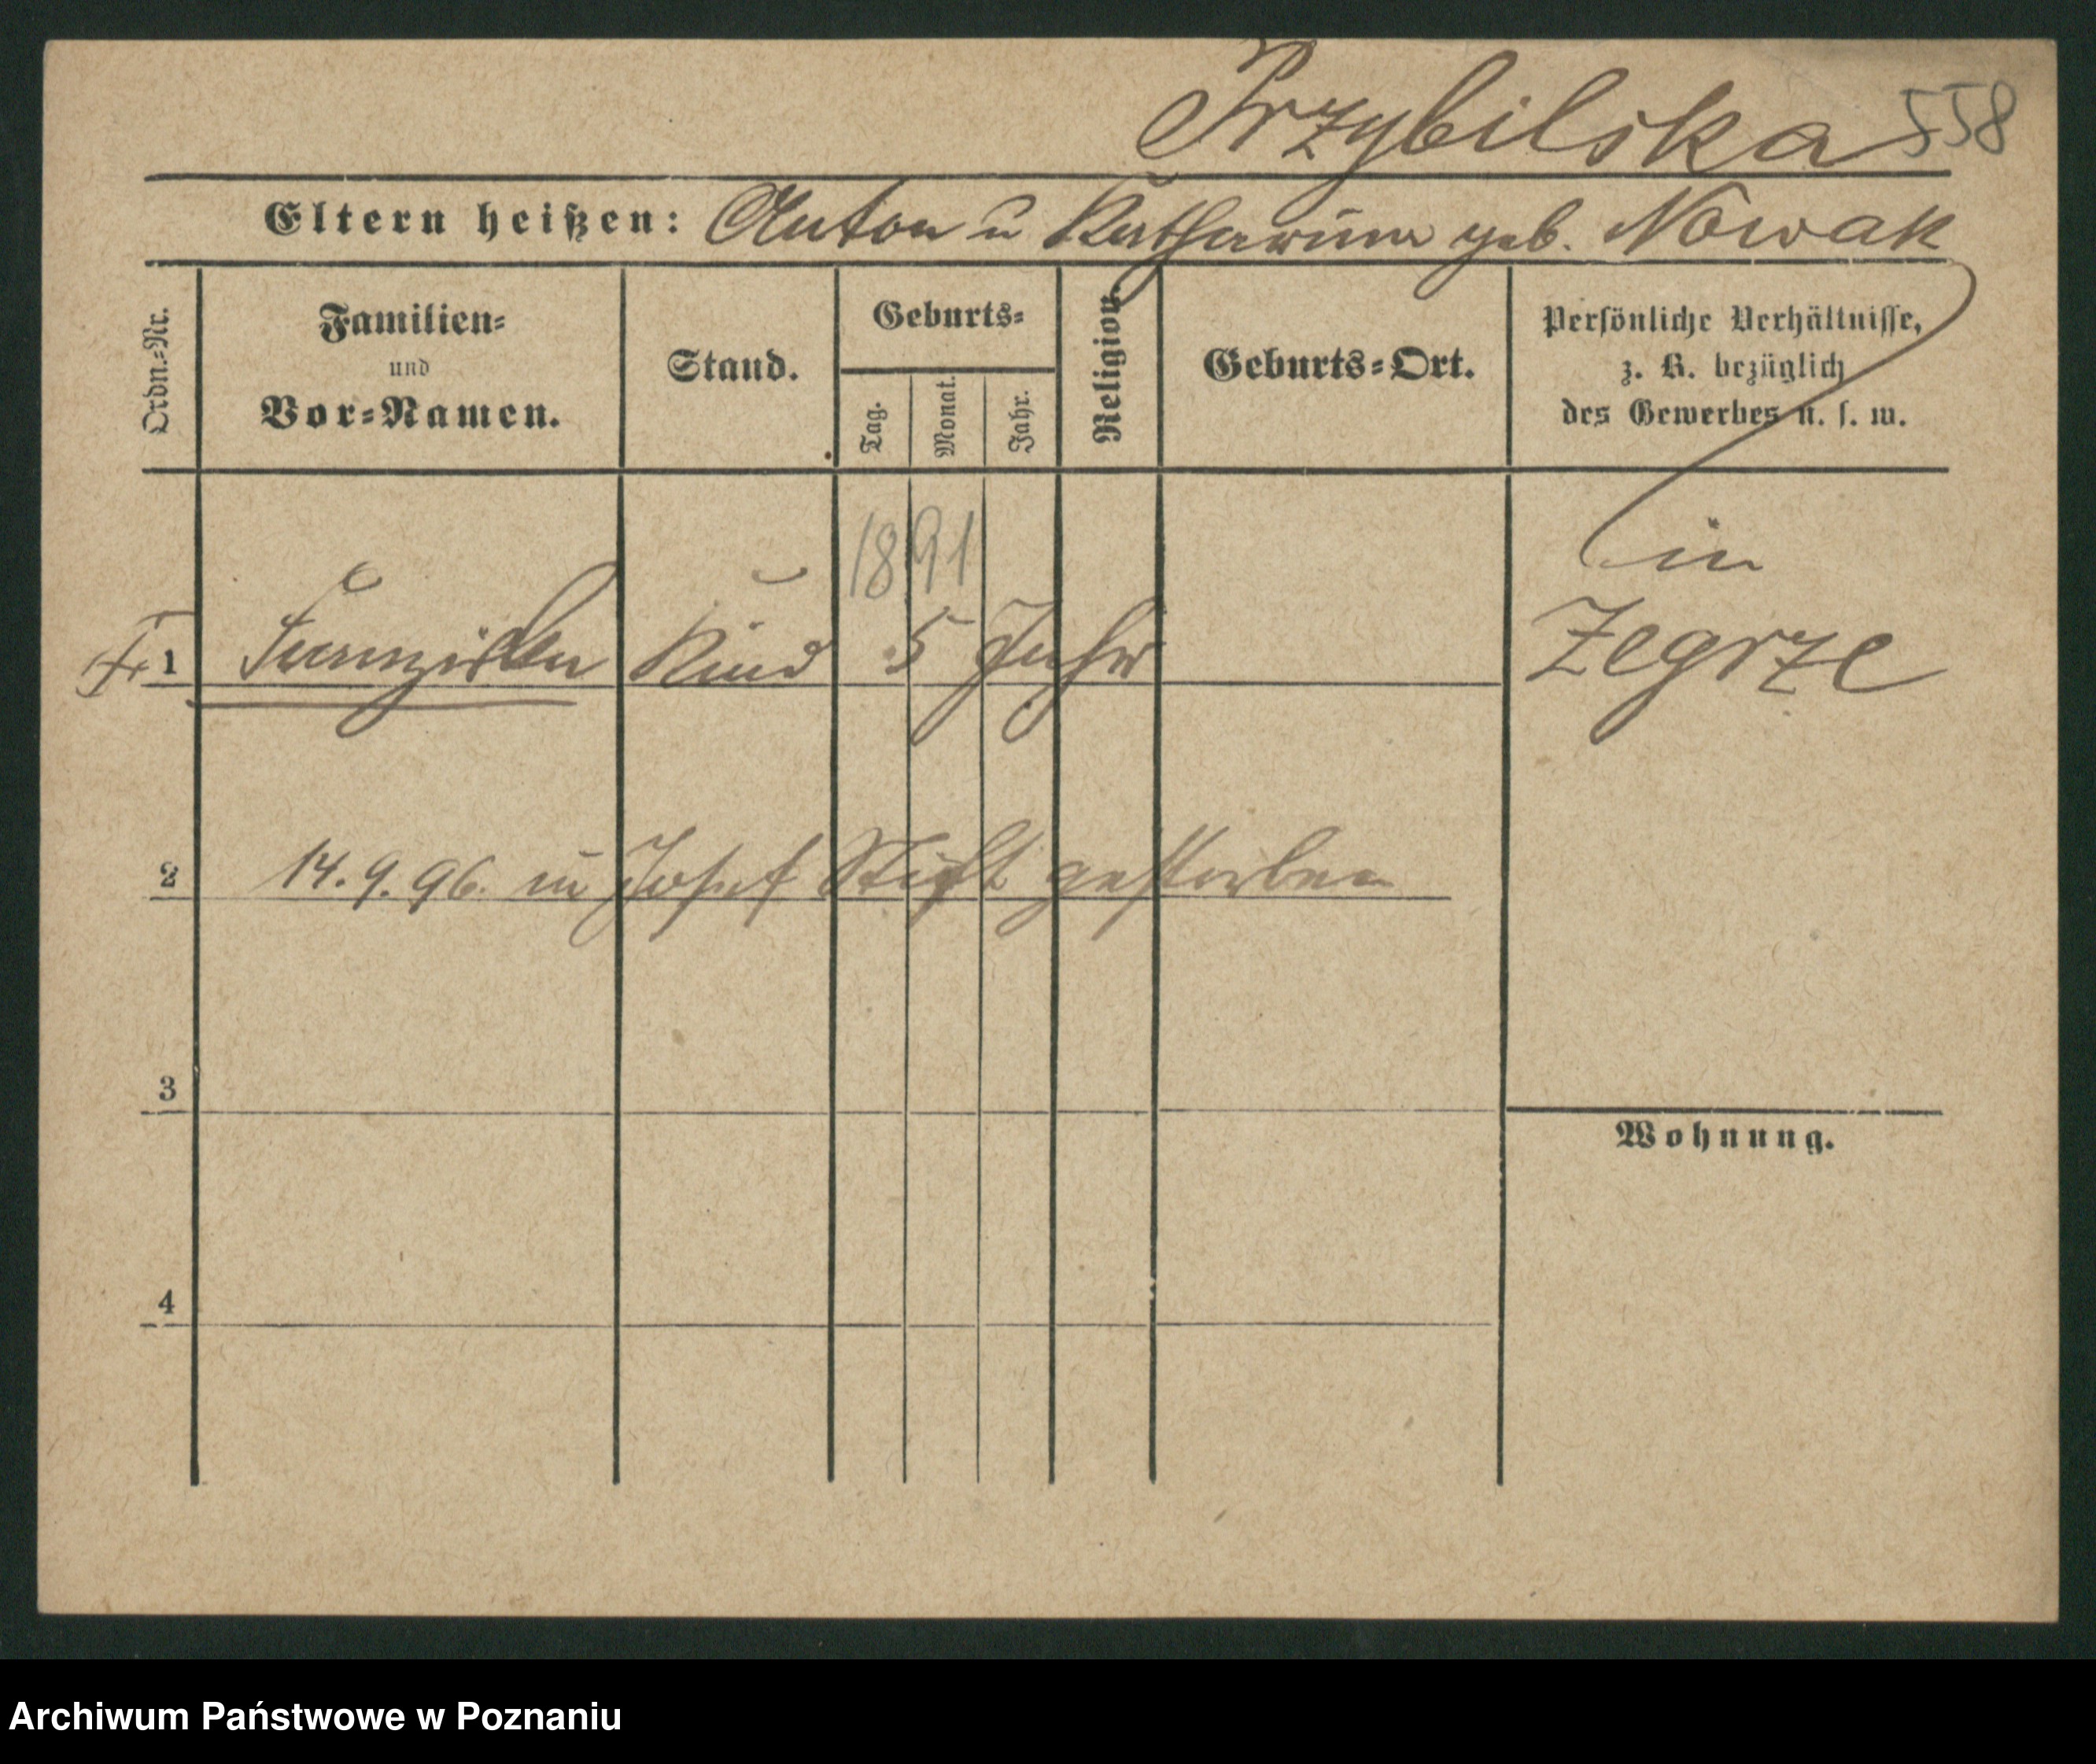 Przybilska 558
Eltern heißen: Anton u Katharina geb. Nowak
Ordn.-Nr.
Familien-
und
Vor-Namen.
Stand.
Geburts-
Tag.
Monat.
Jahr.
Religion.
Geburts-Ort.
Persönliche Verhältnisse,
z. B. bezüglich
des Gewerbes u. s. w.
1891
in
1 Franziska Kind 5 Jahr Zegrze
2 14.9.96. im Josef Stift gestorben
3
Wohnung.
4
Archiwum Państwowe w Poznaniu